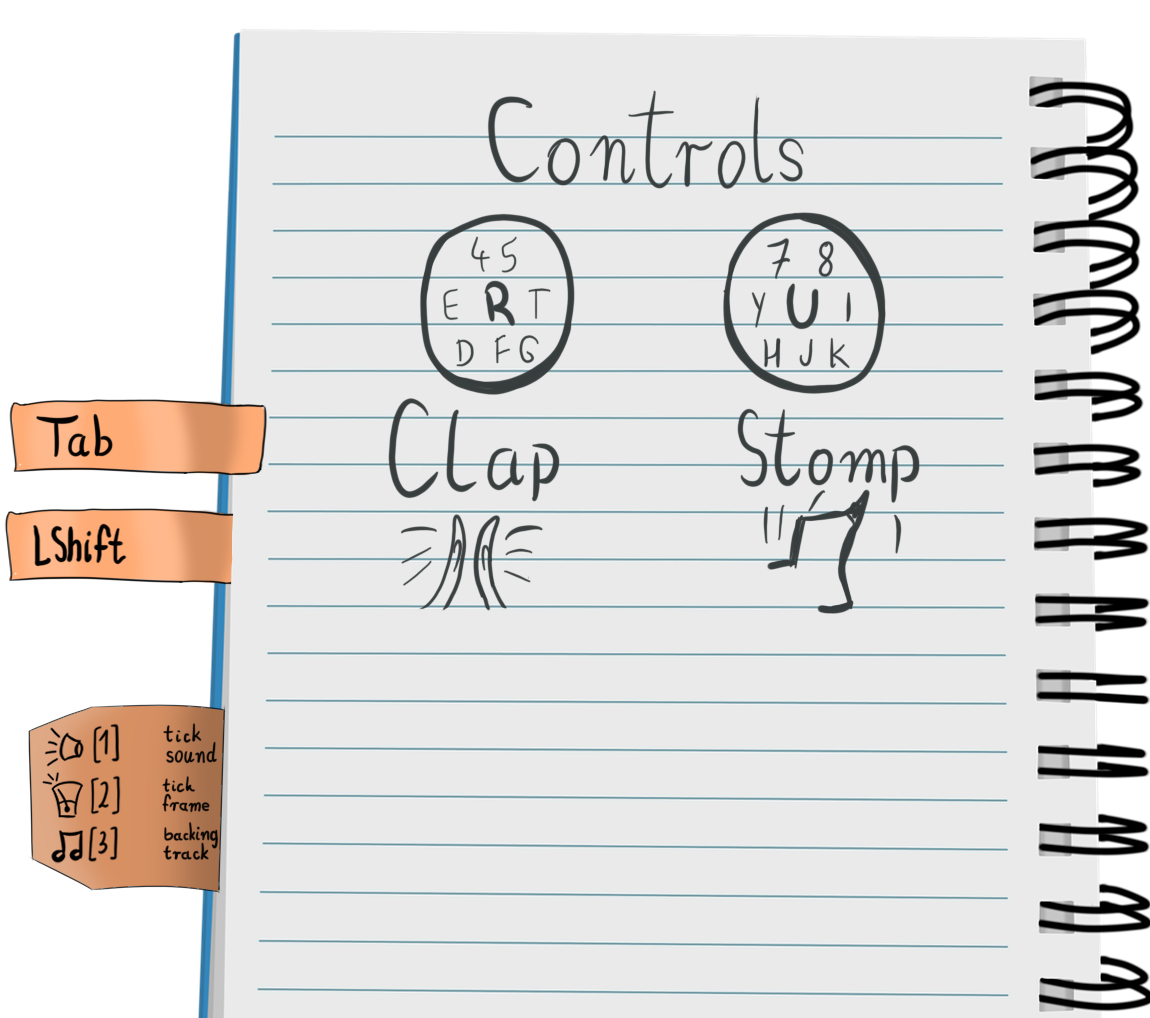 Controls
4 5
E R T
D F G
7 8
Y U I
H J K
Clap
Stomp
Tab
LShift
[1] tick sound
[2] tick frame
[3] backing track